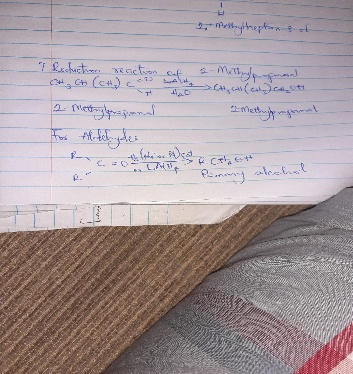 2,- Methylheptan-3-ol
7 Reduction reaction of 2-Methylpropanal
CH3 CH (CH3) C =O H LiAlH4 H2O → CH3 CH (CH3) CH2 OH
2 Methylpropanal 2 Methylpropanol
For Aldehydes
R C = O H2 (Ni or Pt) cat or LiAlH4 → R CH2 OH
R Primary alcohol